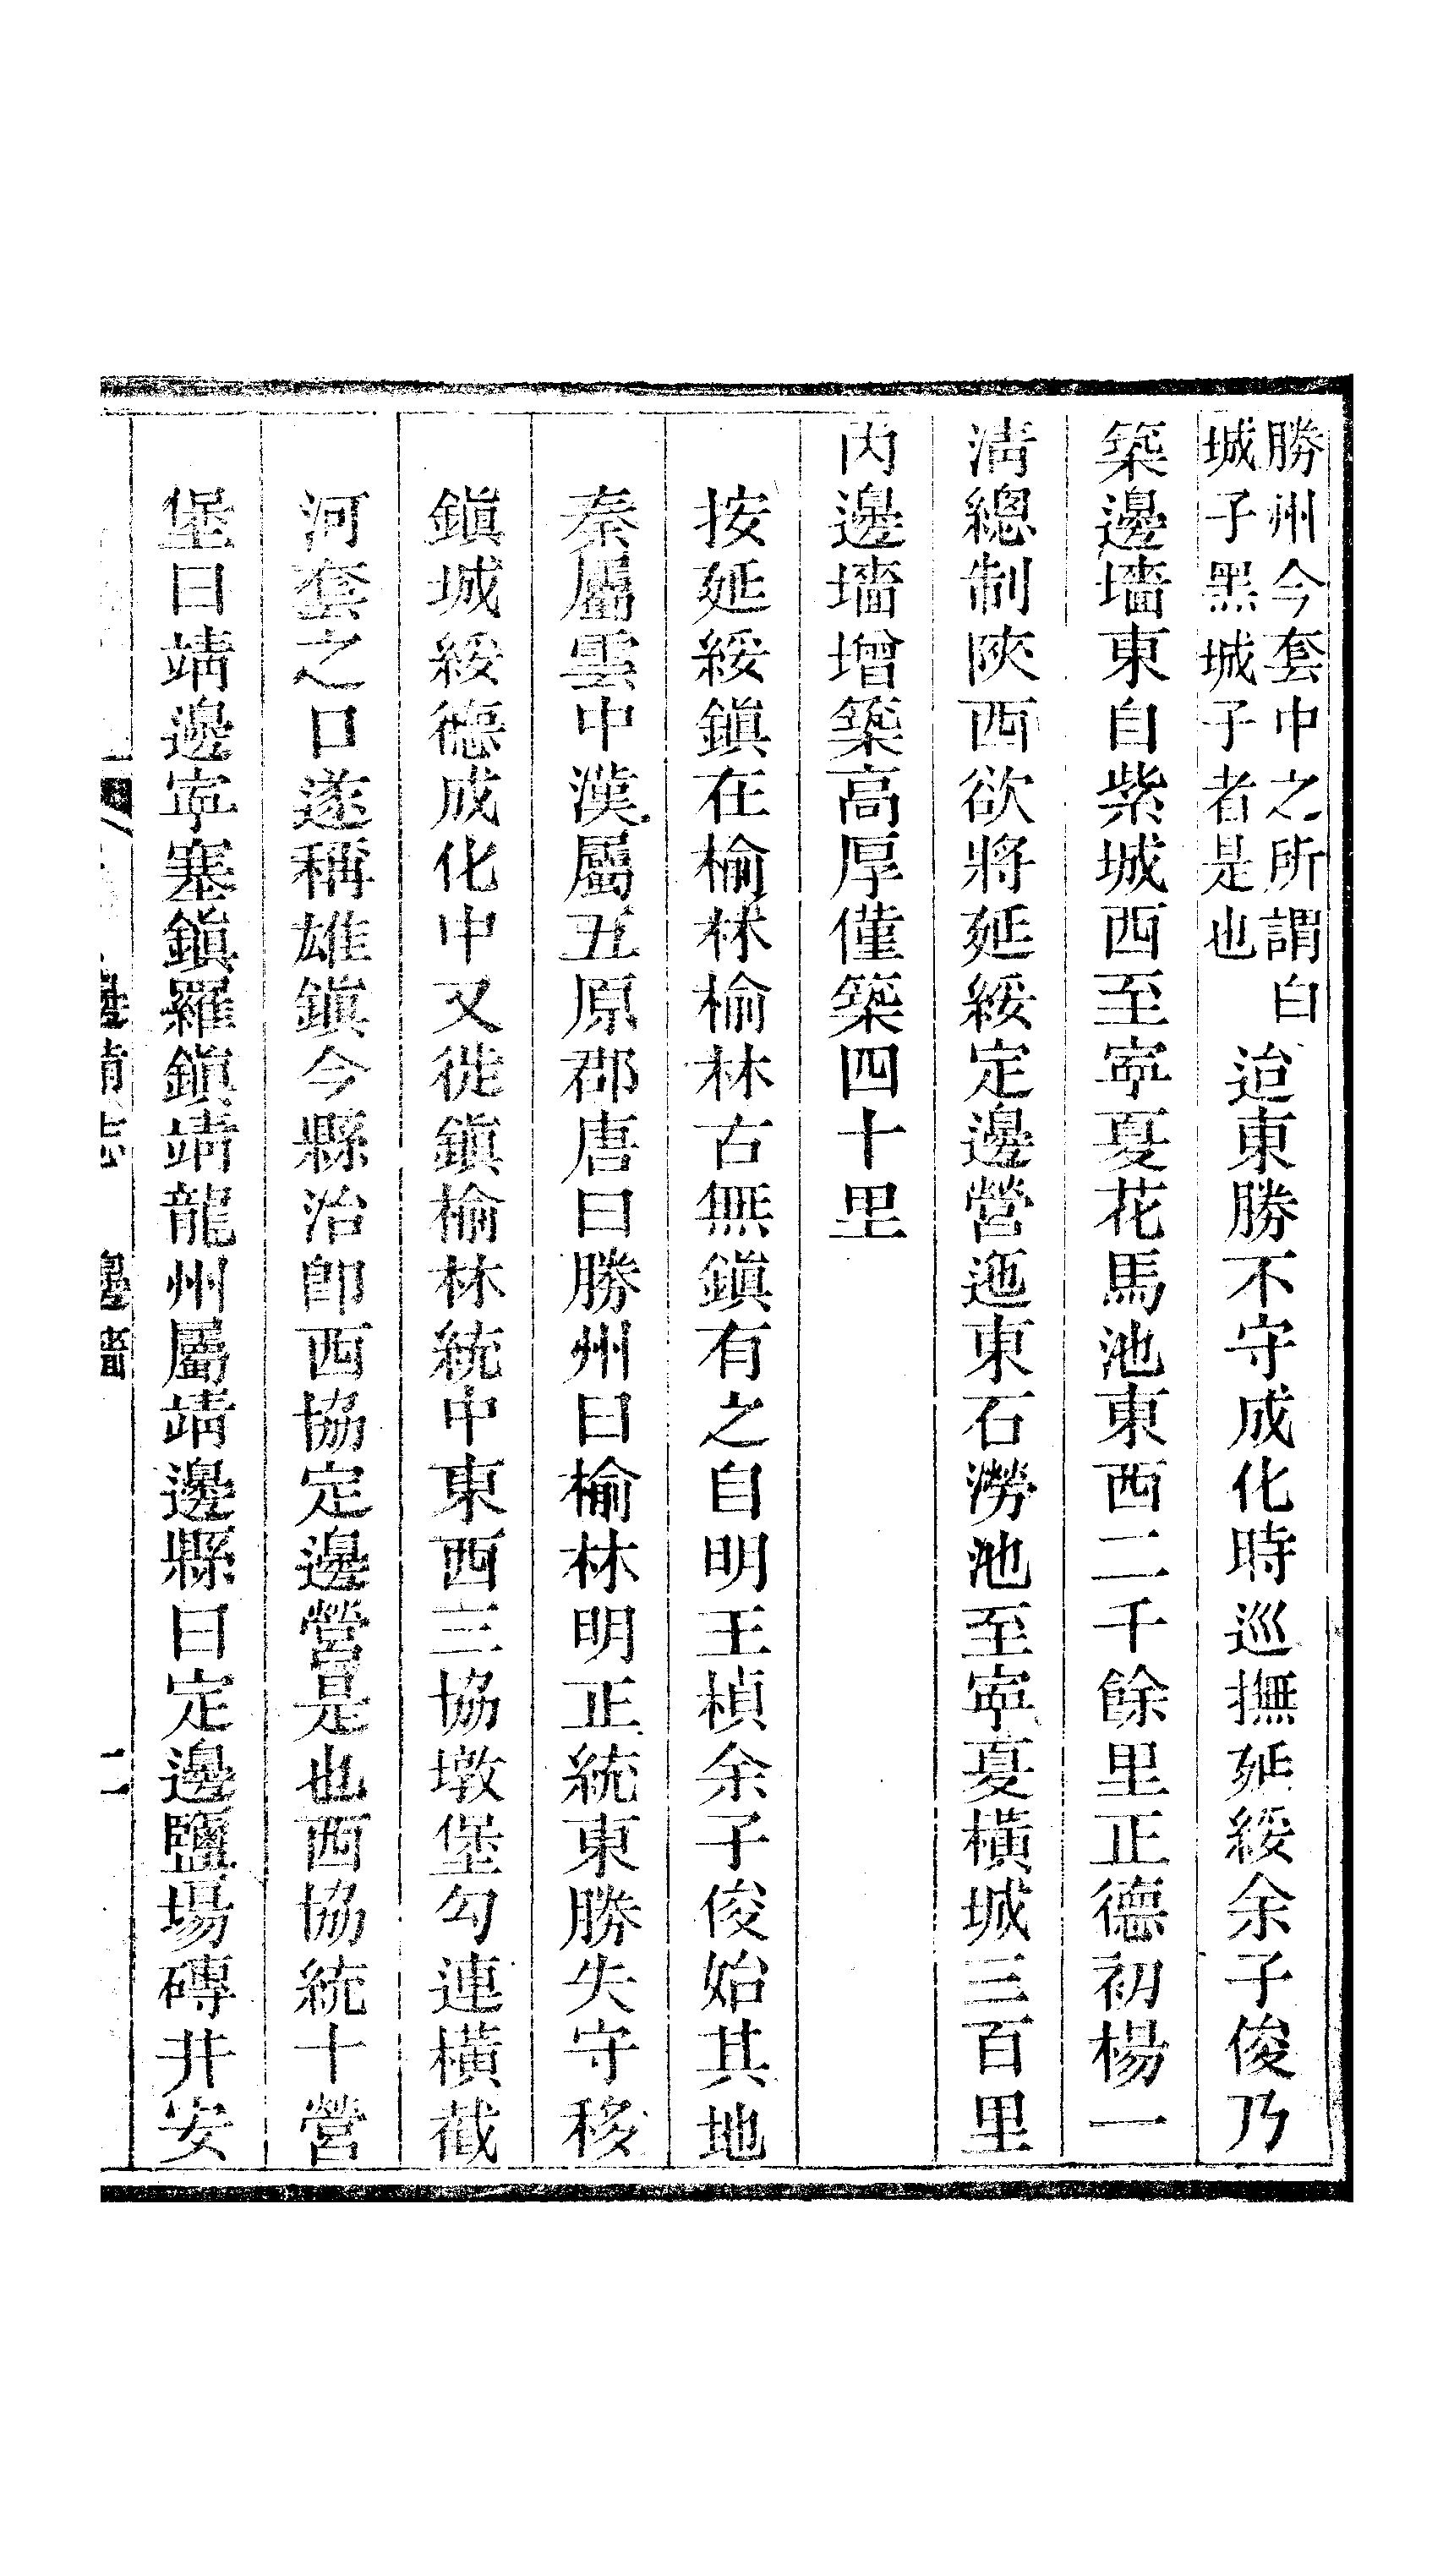 勝州今套中之所謂白
城子黑城子者是也
迨東勝不守成化時巡撫延綏余子俊乃
築邊墻東自紫城西至寧夏花馬池東西二千餘里正德初楊一
淸總制陝西欲將延綏定邊營迤東石澇池至寧夏橫城三百里
內邊墻增築高厚僅築四十里
按延綏鎭在榆林榆林古無鎭有之自明王楨余子俊始其地
秦屬雲中漢屬五原郡唐曰勝州曰榆林明正統東勝失守移
鎭城綏德成化中又徙鎭榆林統中東西三協墩堡勾連橫截
河套之口遂稱雄鎭今縣治卽西協定邊營是也西協統十營
堡曰靖邊寧塞鎭羅鎭靖龍州屬靖邊縣曰定邊鹽場磚井安
邊墻
二